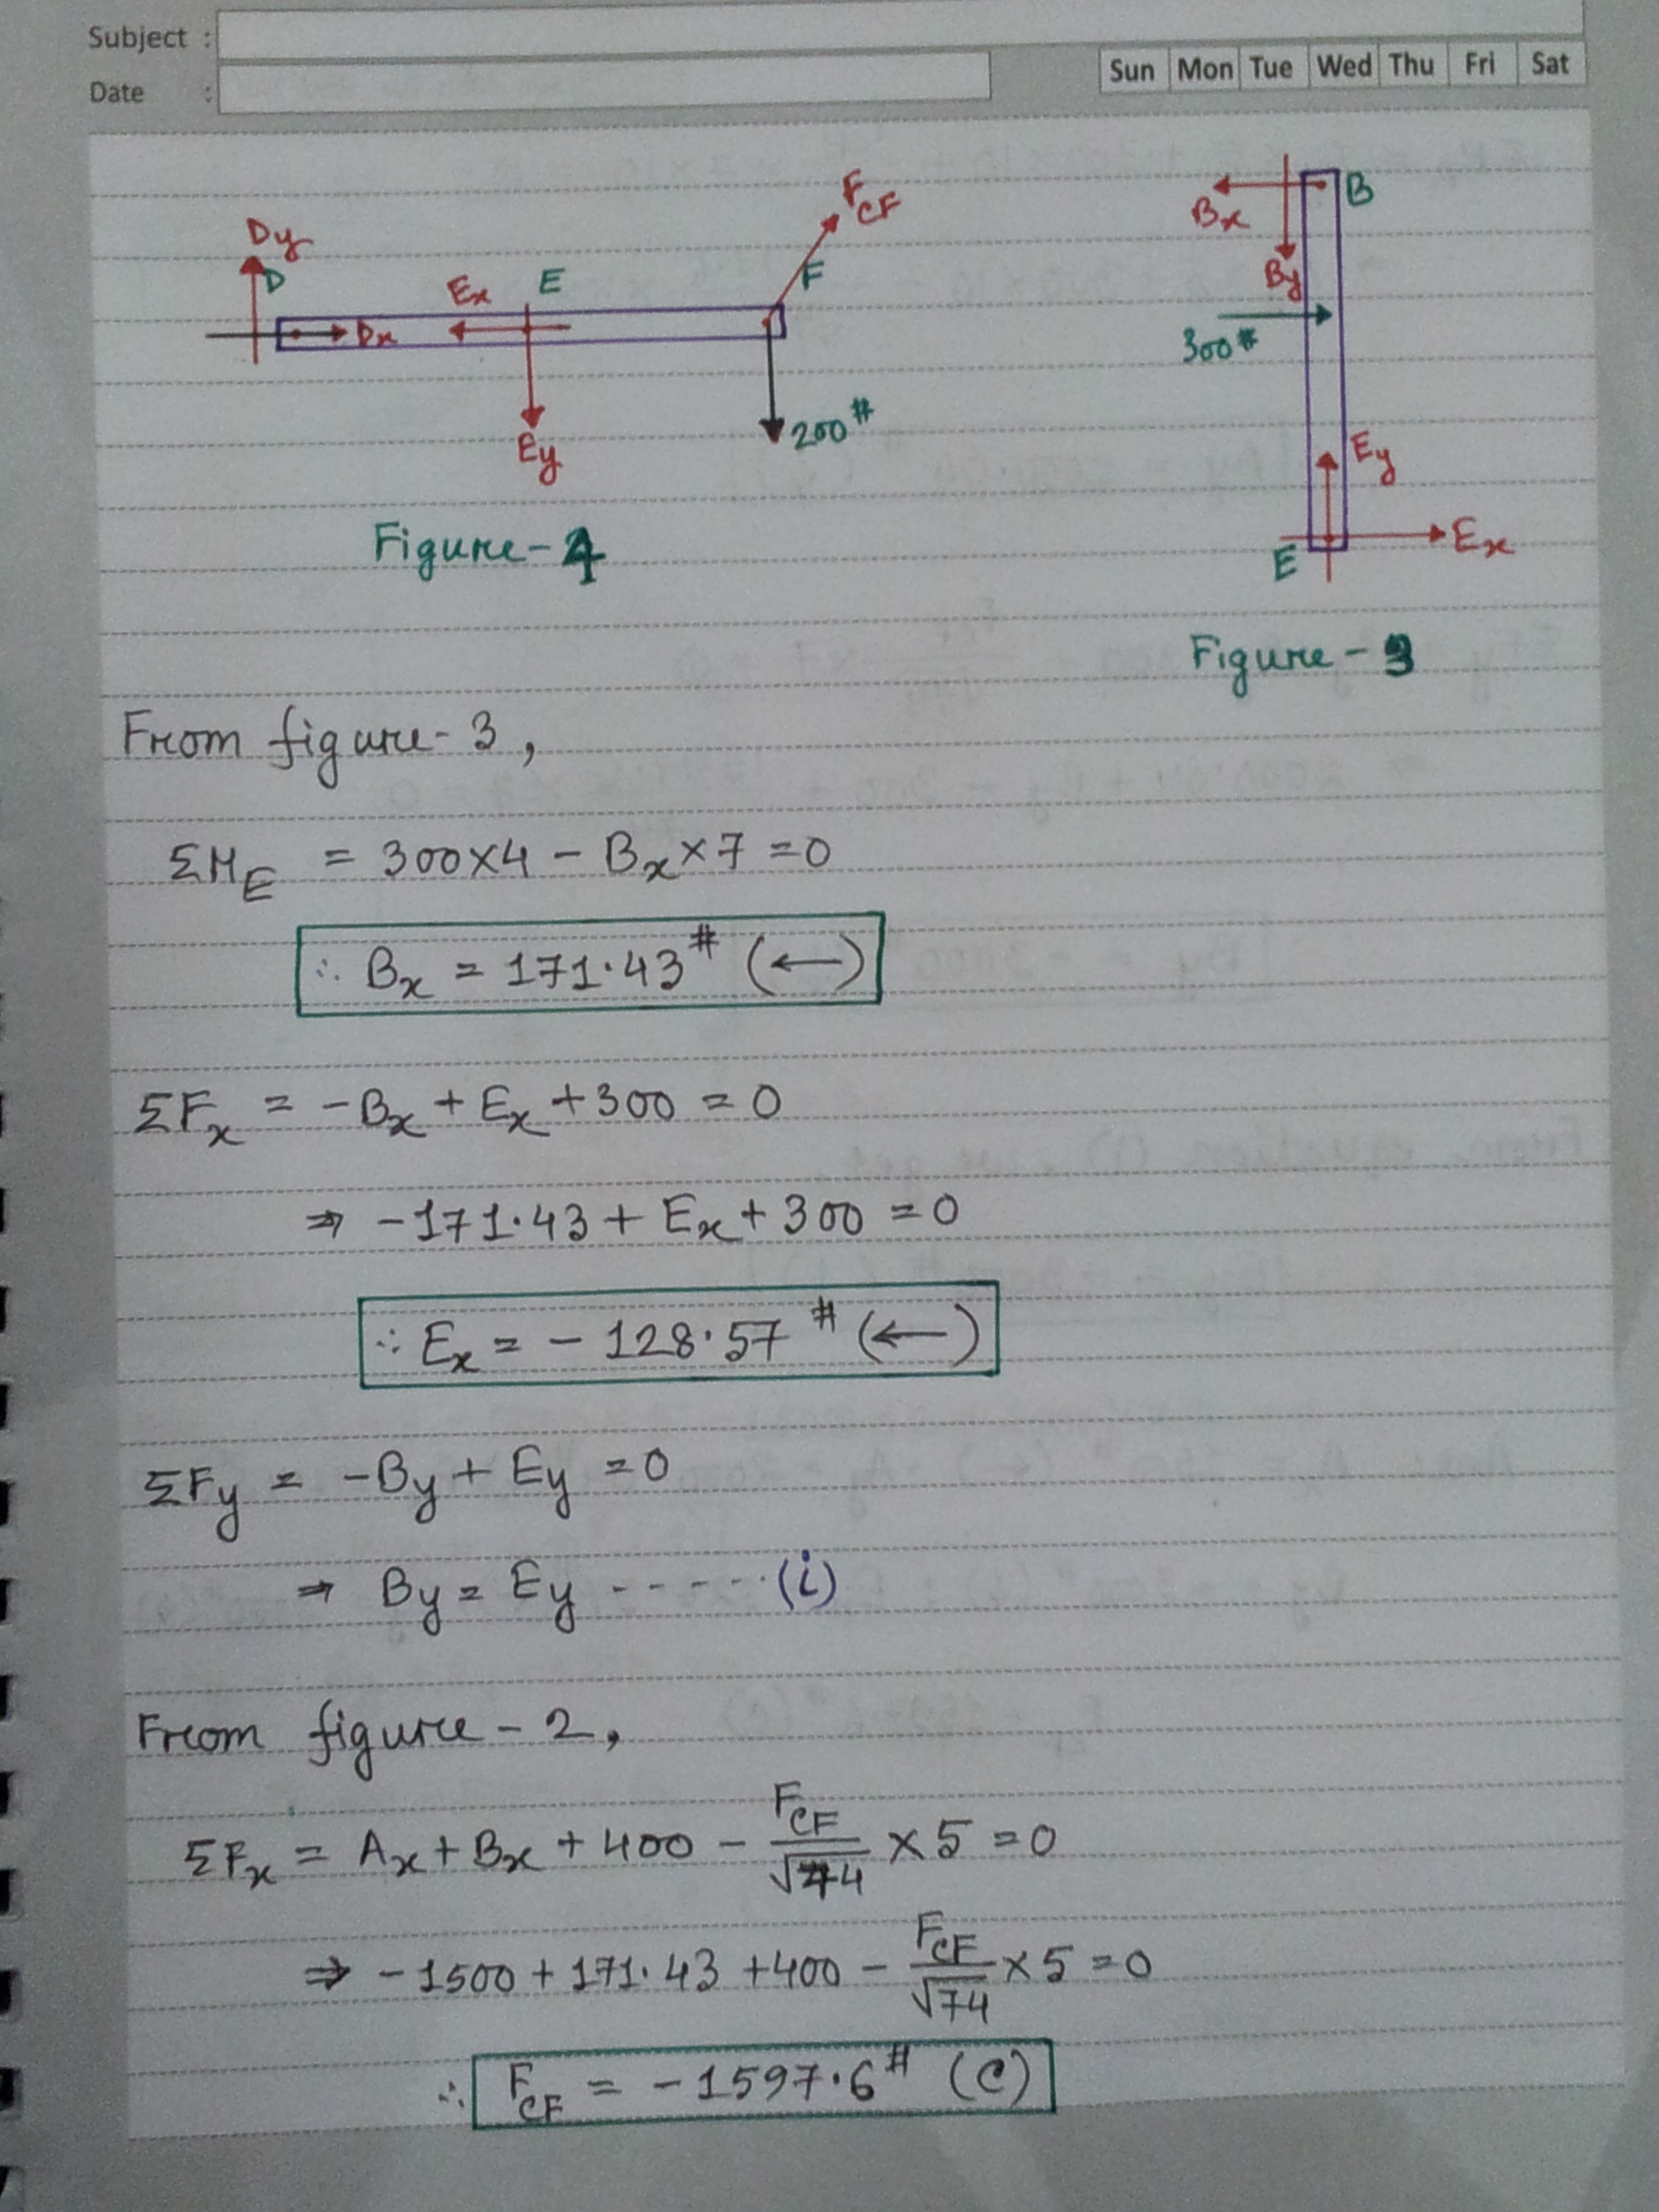 Subject :
Date :
Sun Mon Tue Wed Thu Fri Sat
Dy
D
Dx
Ex
E
Ey
F
FCF
200#
Figure-4
Bx
B
By
300#
Ey
E
Ex
Figure-3
From figure-3,
ΣM_E = 300×4 - Bx×7 =0
∴ Bx = 171.43# (←)
ΣFx = -Bx + Ex + 300 = 0
⇒ -171.43 + Ex + 300 = 0
∴ Ex = - 128.57 # (←)
ΣFy = -By + Ey =0
⇒ By = Ey -----(i)
From figure-2,
ΣFx = Ax + Bx + 400 - FCF/√74 × 5 =0
⇒ -1500 + 171.43 +400 - FCF/√74 × 5 =0
∴ FCF = -1597.6# (C)